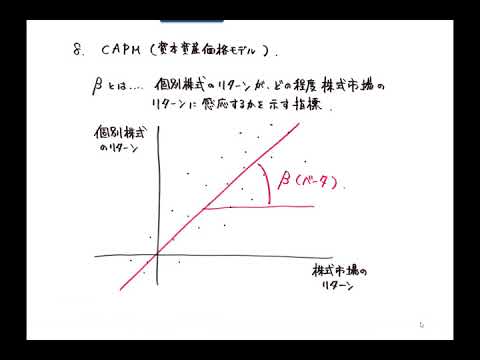 8. CAPM (資本資産価格モデル).
βとは.... 個別株式のリターンが、どの程度株式市場の
リターンに感応するかを示す指標.
個別株式
のリターン
β(ベータ).
株式市場の
リターン